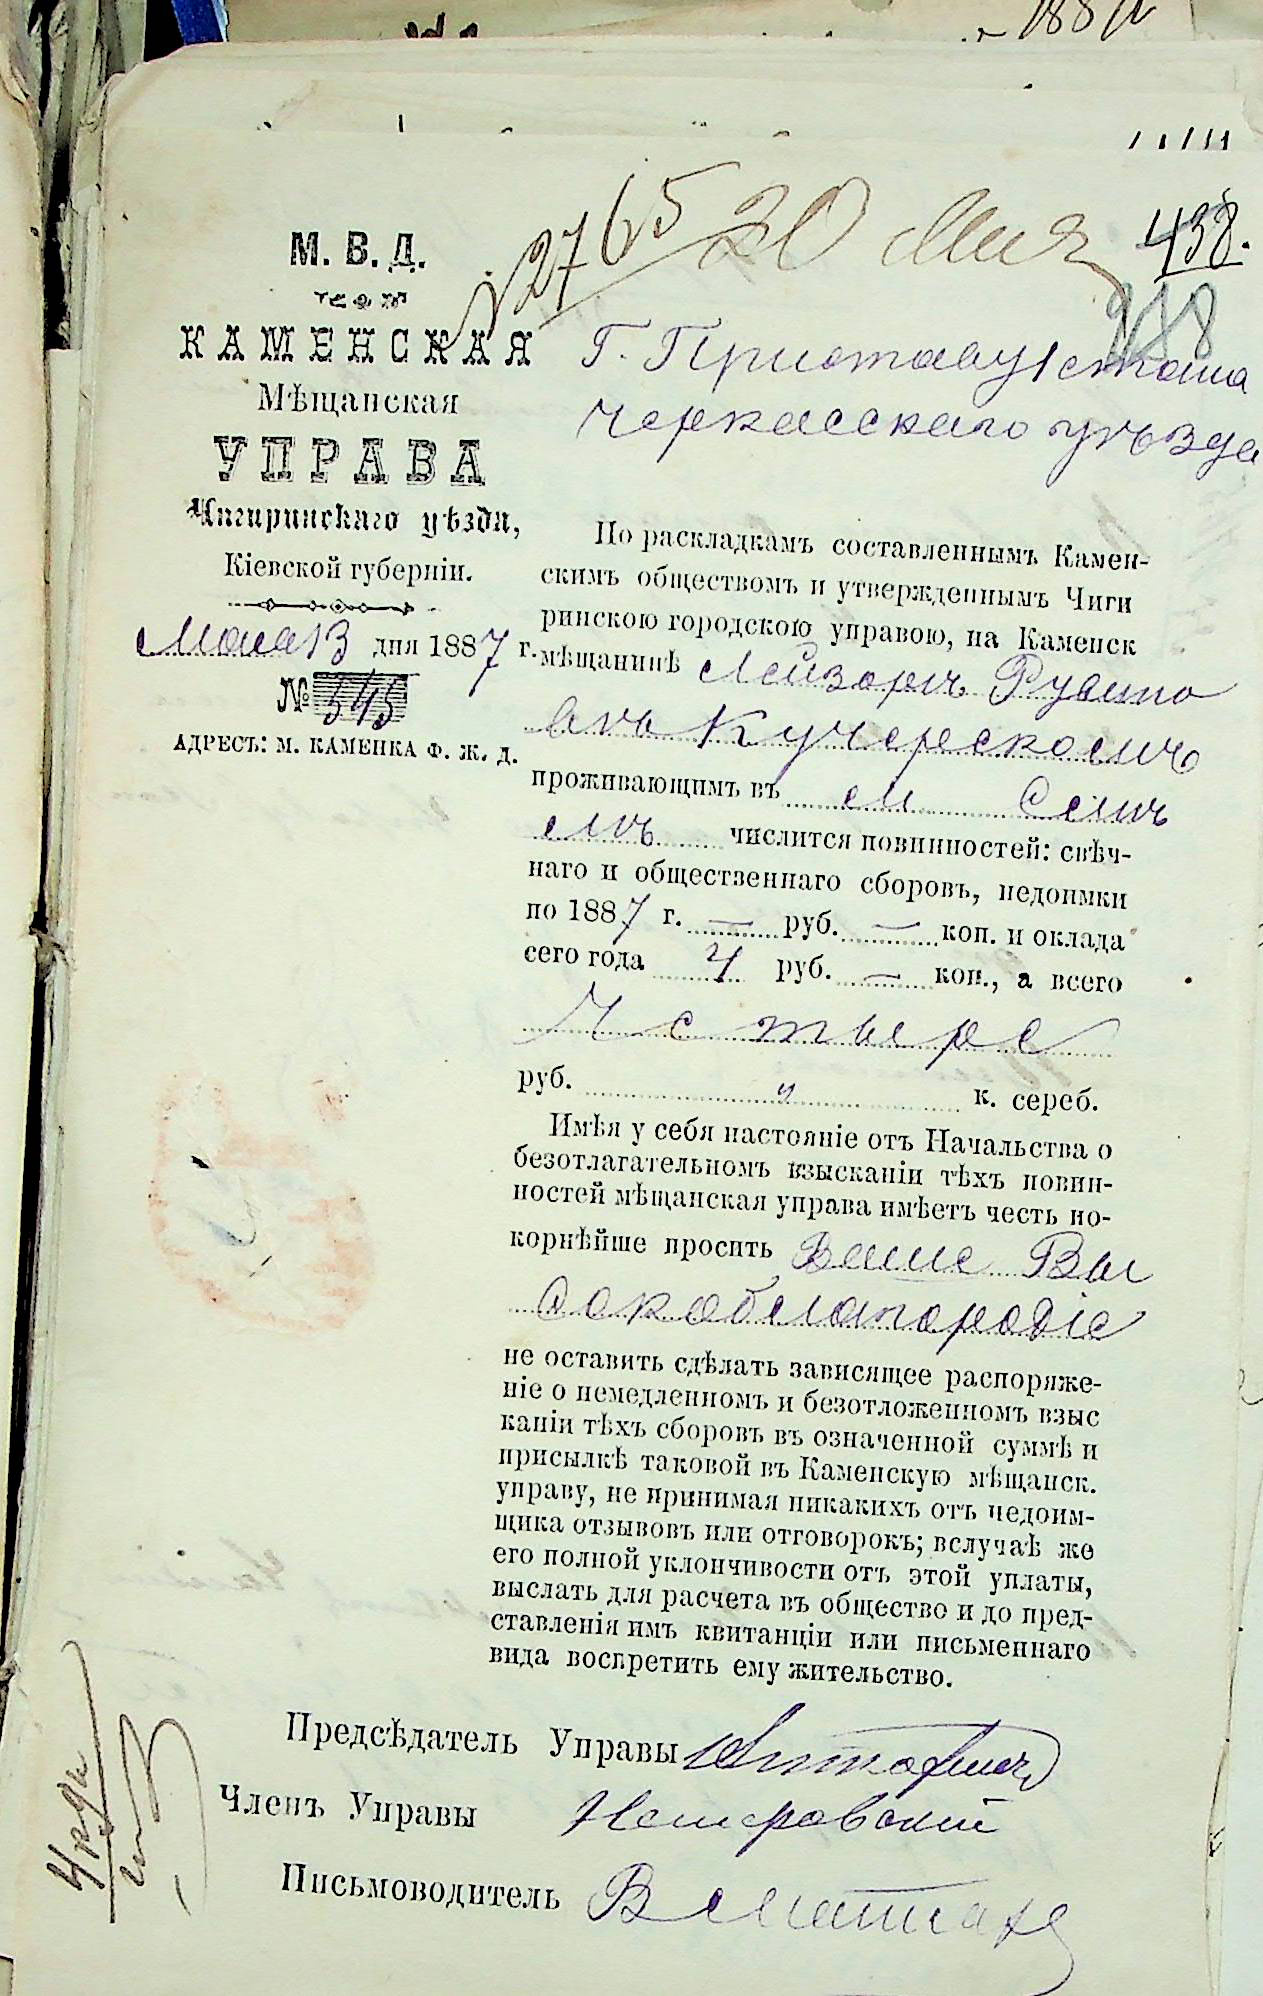 2765 20 Мая 438.
М. В. Д.
КАМЕНСКАЯ
Мѣщанская
УПРАВА
Чигиринскаго уѣзда,
Кіевской губерніи.
Мая 13 дня 1887 г.
№ 545
АДРЕСЪ: М. КАМЕНКА Ф. Ж. Д.
Г. Приставу 1 стана
Черкасскаго уѣзда
По раскладкамъ составленнымъ Камен-
скимъ обществомъ и утвержденнымъ Чиги
ринскою городскою управою, на Каменск
мѣщанинѣ Лейзоръ Рувино
вѣ Кучерскомъ
проживающимъ въ м Смѣ
числится повинностей: свѣч-
наго и общественнаго сборовъ, недоимки
по 1887 г. — руб. — коп. и оклада
сего года 4 руб. — коп., а всего
Четыре
руб. " к. сереб.
Имѣя у себя настояніе отъ Начальства о
безотлагательномъ взысканіи тѣхъ повин-
ностей мѣщанская управа имѣетъ честь по-
корнѣйше просить Ваше Вы
сокоблагородіе
не оставить сдѣлать зависящее распоряже-
ніе о немедленномъ и безотложенномъ взыс
каніи тѣхъ сборовъ въ означенной суммѣ и
присылкѣ таковой въ Каменскую мѣщанск.
управу, не принимая никакихъ отъ недоим-
щика отзывовъ или отговорокъ; вслучаѣ же
его полной уклончивости отъ этой уплаты,
выслать для расчета въ общество и до пред-
ставленія имъ квитанціи или письменнаго
вида воспретить ему жительство.
Предсѣдатель Управы
Членъ Управы
Письмоводитель